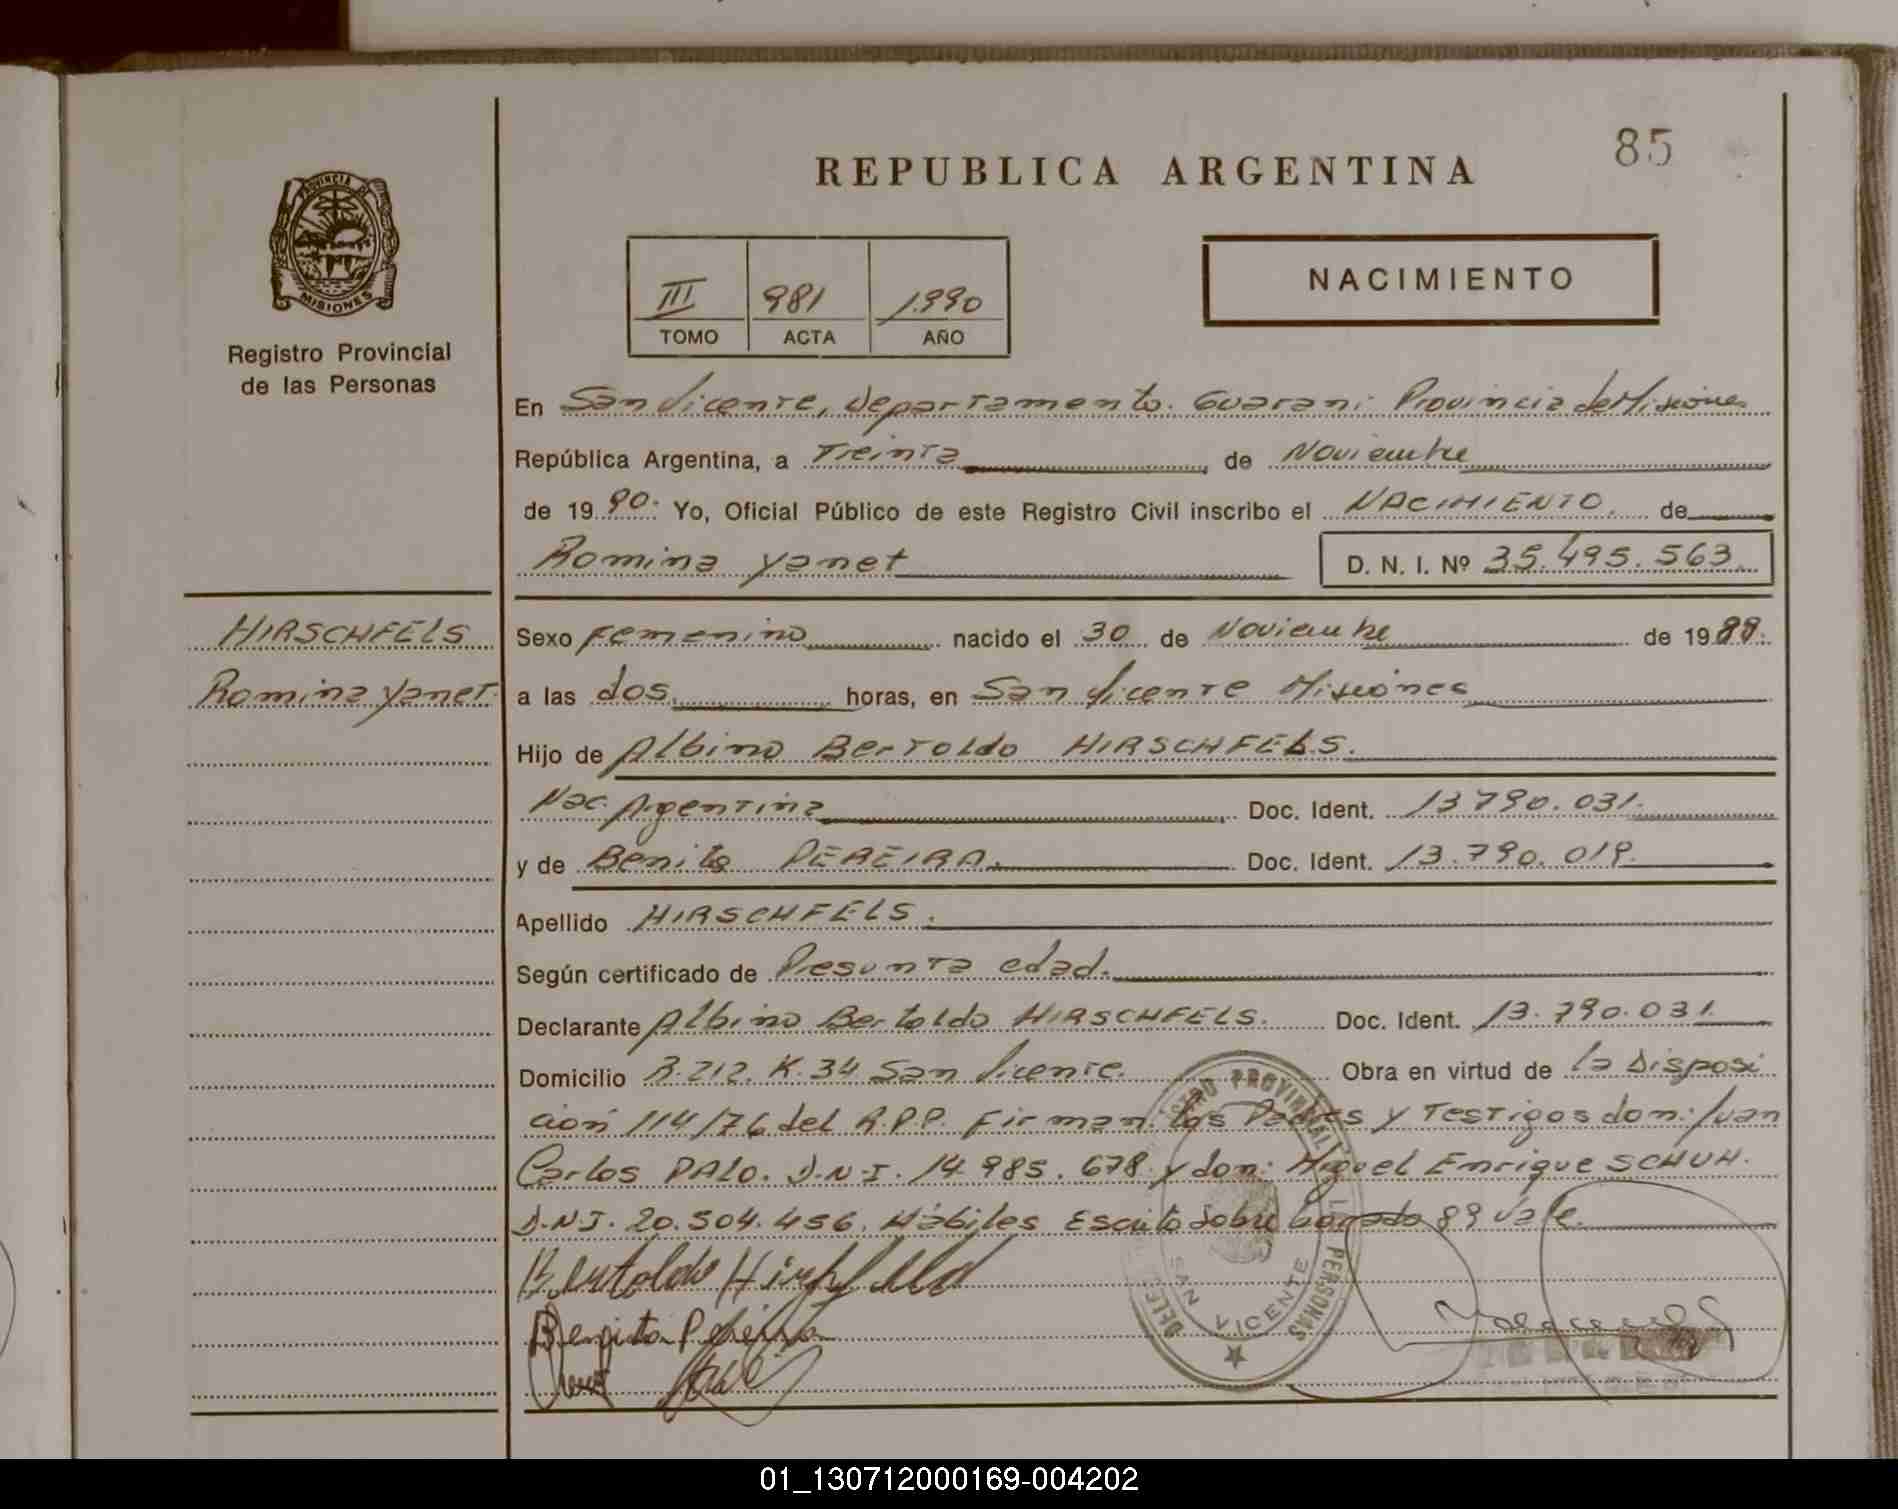 85
REPUBLICA ARGENTINA
PROVINCIA DE
MISIONES
Registro Provincial
de las Personas
III 981 1.990
TOMO ACTA AÑO
NACIMIENTO
En San Vicente, Departamento Guarani Provincia de Misiones
República Argentina, a Treinta de Noviembre
de 1990. Yo, Oficial Público de este Registro Civil inscribo el NACIMIENTO. de
Romina Yanet D. N. I. Nº 35.495.563.
HIRSCHFELS
Romina Yanet.
Sexo Femenino nacido el 30 de Noviembre de 1989.
a las dos. horas, en San Vicente Misiones
Hijo de Albino Bertoldo HIRSCHFELS.
Nac. Argentina Doc. Ident. 13790.031.
y de Benita PEREIRA. Doc. Ident. 13.790.019.
Apellido HIRSCHFELS.
Según certificado de Presunta edad.
Declarante Albino Bertoldo HIRSCHFELS. Doc. Ident. 13.790.031.
Domicilio R.212. K.34 San Vicente. Obra en virtud de la Disposi
ción 114/76 del R.P.P. Firman: los Padres y Testigos don: Juan
Carlos PALO. D.N.I. 14.985.678 y don: Miguel Enrique SCHUH.
D.N.I. 20.504.456. Hábiles Escrito sobre borrado 89 Vale.
PROVINCIAL
PERSONAS
SAN VICENTE
Bertoldo
Benita Pereira
01_130712000169-004202